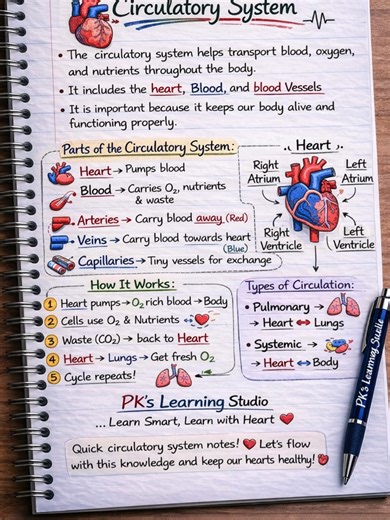 Circulatory System
• The circulatory system helps transport blood, oxygen,
and nutrients throughout the body.
• It includes the heart, Blood, and blood Vessels
• It is important because it keeps our body alive and
functioning properly.
Parts of the Circulatory System:
Heart → Pumps blood
Blood → Carries O₂, nutrients
& waste
Arteries → Carry blood away (Red)
Veins → Carry blood towards heart
(Blue)
Capillaries → Tiny vessels for exchange
Heart
Right
Atrium
Left
Atrium
Right
Ventricle
Left
Ventricle
How It Works:
1 Heart pumps → O₂ rich blood → Body
2 Cells use O₂ & Nutrients
3 Waste (CO₂) → back to Heart
4 Heart → Lungs → Get fresh O₂
5 Cycle repeats!
Types of Circulation:
• Pulmonary →
→ Heart ↔ Lungs
• Systemic →
→ Heart ↔ Body
PK's Learning Studio
... Learn Smart, Learn with Heart ❤️
Quick circulatory system notes! ❤️ Let's flow
with this knowledge and keep our hearts healthy!
PK's Learning